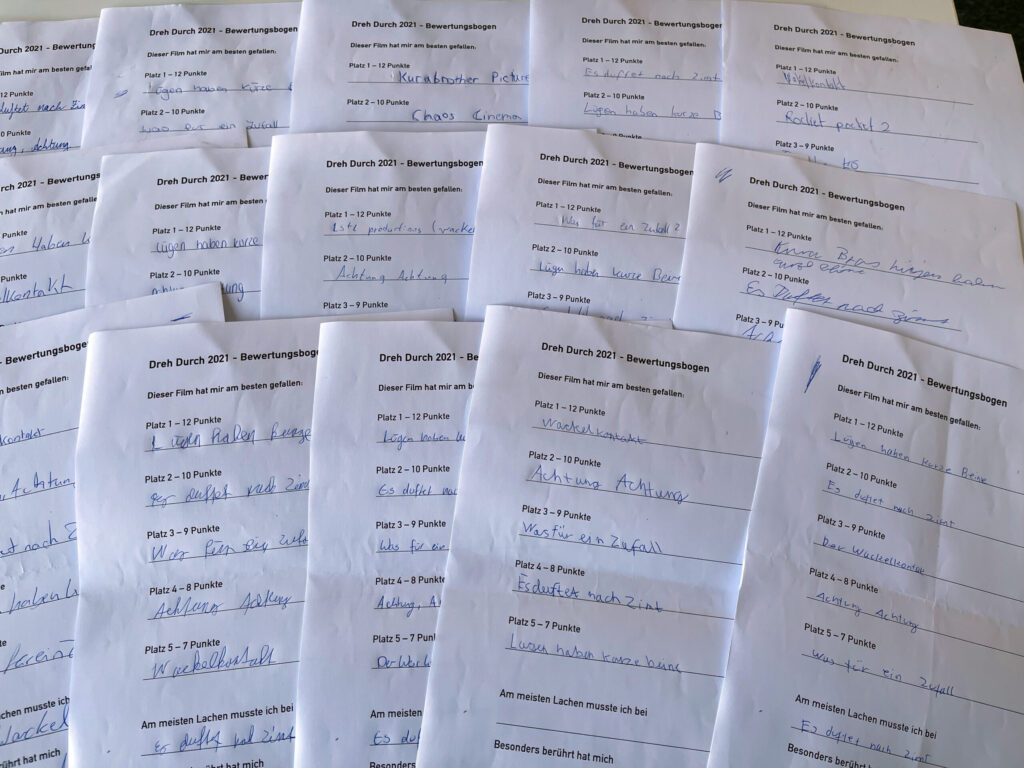 Durch 2021 - Bewertungsbogen
Film hat mir am besten gefallen
Platz 1 – 12 Punkte
duftet nach Zim
Punkte
Achtung
Dreh Durch 2021 - Bewertungsbogen
Dieser Film hat mir am besten gefallen:
Platz 1 – 12 Punkte
Lügen haben kürze
Platz 2 – 10 Punkte
ein Zufall
Dreh Durch 2021 - Bewertungsbogen
Dieser Film hat mir am besten gefallen:
Platz 1 – 12 Punkte
Kurzbrother Picture
Platz 2 – 10 Punkte
Chaos Cinema
Dreh Durch 2021 - Bewertungsbogen
Dieser Film hat mir am besten gefallen:
Platz 1 – 12 Punkte
Es duftet nach Zimt
Platz 2 – 10 Punkte
Lügen haben kurze B
Dreh Durch 2021 - Bewertungsbogen
Dieser Film hat mir am besten gefallen:
Platz 1 – 12 Punkte
Platz 2 – 10 Punkte
Rocket pocket 2
Platz 3 – 9 Punkte
Durch 2021 - Bewertungs
Film hat mir am besten gefallen
– 12 Punkte
Haben k
Punkte
lkontakt
Dreh Durch 2021 - Bewertungsbo
Dieser Film hat mir am besten gefallen:
Platz 1 – 12 Punkte
Lügen haben kurze
Platz 2 – 10 Punkte
Dreh Durch 2021 - Bewertungsbogen
Dieser Film hat mir am besten gefallen:
Platz 1 – 12 Punkte
Platz 2 – 10 Punkte
Achtung Achtung
Platz 3 – 9 Punkte
Dreh Durch 2021 - Bewertungsbogen
Dieser Film hat mir am besten gefallen:
Platz 1 – 12 Punkte
Was für ein Zufall 2
Platz 2 – 10 Punkte
Lügen haben kurze Bein
Platz 3 – 9 Punkte
Dreh Durch 2021 - Bewertungsbogen
Dieser Film hat mir am besten gefallen:
Platz 1 – 12 Punkte
Platz 2 – 10 Punkte
Es Duftet nach Zimt
Platz 3 – 9 P
Durch 2021 - Bewertungsboge
am besten gefallen:
Punkte
kontakt
Punkte
Achtun
Punkte
nach Z
haben k
lachen musste ich
Wackel
berührt hat mich
Dreh Durch 2021 - Bewertungsbo
Dieser Film hat mir am besten gefallen:
Platz 1 – 12 Punkte
Lügen haben kurze
Platz 2 – 10 Punkte
duftet nach Zimt
Platz 3 – 9 Punkte
Was für ein Zufa
Platz 4 – 8 Punkte
Achtung Achtung
Platz 5 – 7 Punkte
Wackelkontakt
Am meisten Lachen musste ich bei
duftet nach Zimt
Besonders berührt hat mich
Dreh Durch 2021 - Bewertungsbo
Dieser Film hat mir am be
Platz 1 – 12 Punkte
Lügen haben ku
Platz 2 – 10 Punkte
Es duftet nac
Platz 3 – 9 Punkte
Was für ein
Platz 4 – 8 Punkte
Achtung, A
Platz 5 – 7 Punkt
Der Wack
Am meisten Lachen
Es duf
Besonders
Dreh Durch 2021 - Bewertungsbogen
Dieser Film hat mir am besten gefallen:
Platz 1 – 12 Punkte
Wackelkontakt
Platz 2 – 10 Punkte
Achtung Achtung
Platz 3 – 9 Punkte
Was für ein Zufall
Platz 4 – 8 Punkte
Es duftet nach Zimt
Platz 5 – 7 Punkte
Lügen haben kurze beine
Am meisten Lachen musste ich bei
Besonders berührt hat mich
Dreh Durch 2021 - Bewertungsbogen
Dieser Film hat mir am besten gefallen:
Platz 1 – 12 Punkte
Lügen haben kurze Beine
Platz 2 – 10 Punkte
Es duftet nach Zimt
Platz 3 – 9 Punkte
Der Wackelkontakt
Platz 4 – 8 Punkte
Achtung Achtung
Platz 5 – 7 Punkte
Was für ein Zufall
Am meisten Lachen musste ich bei
Es duftet nach Zimt
Besonders berührt hat